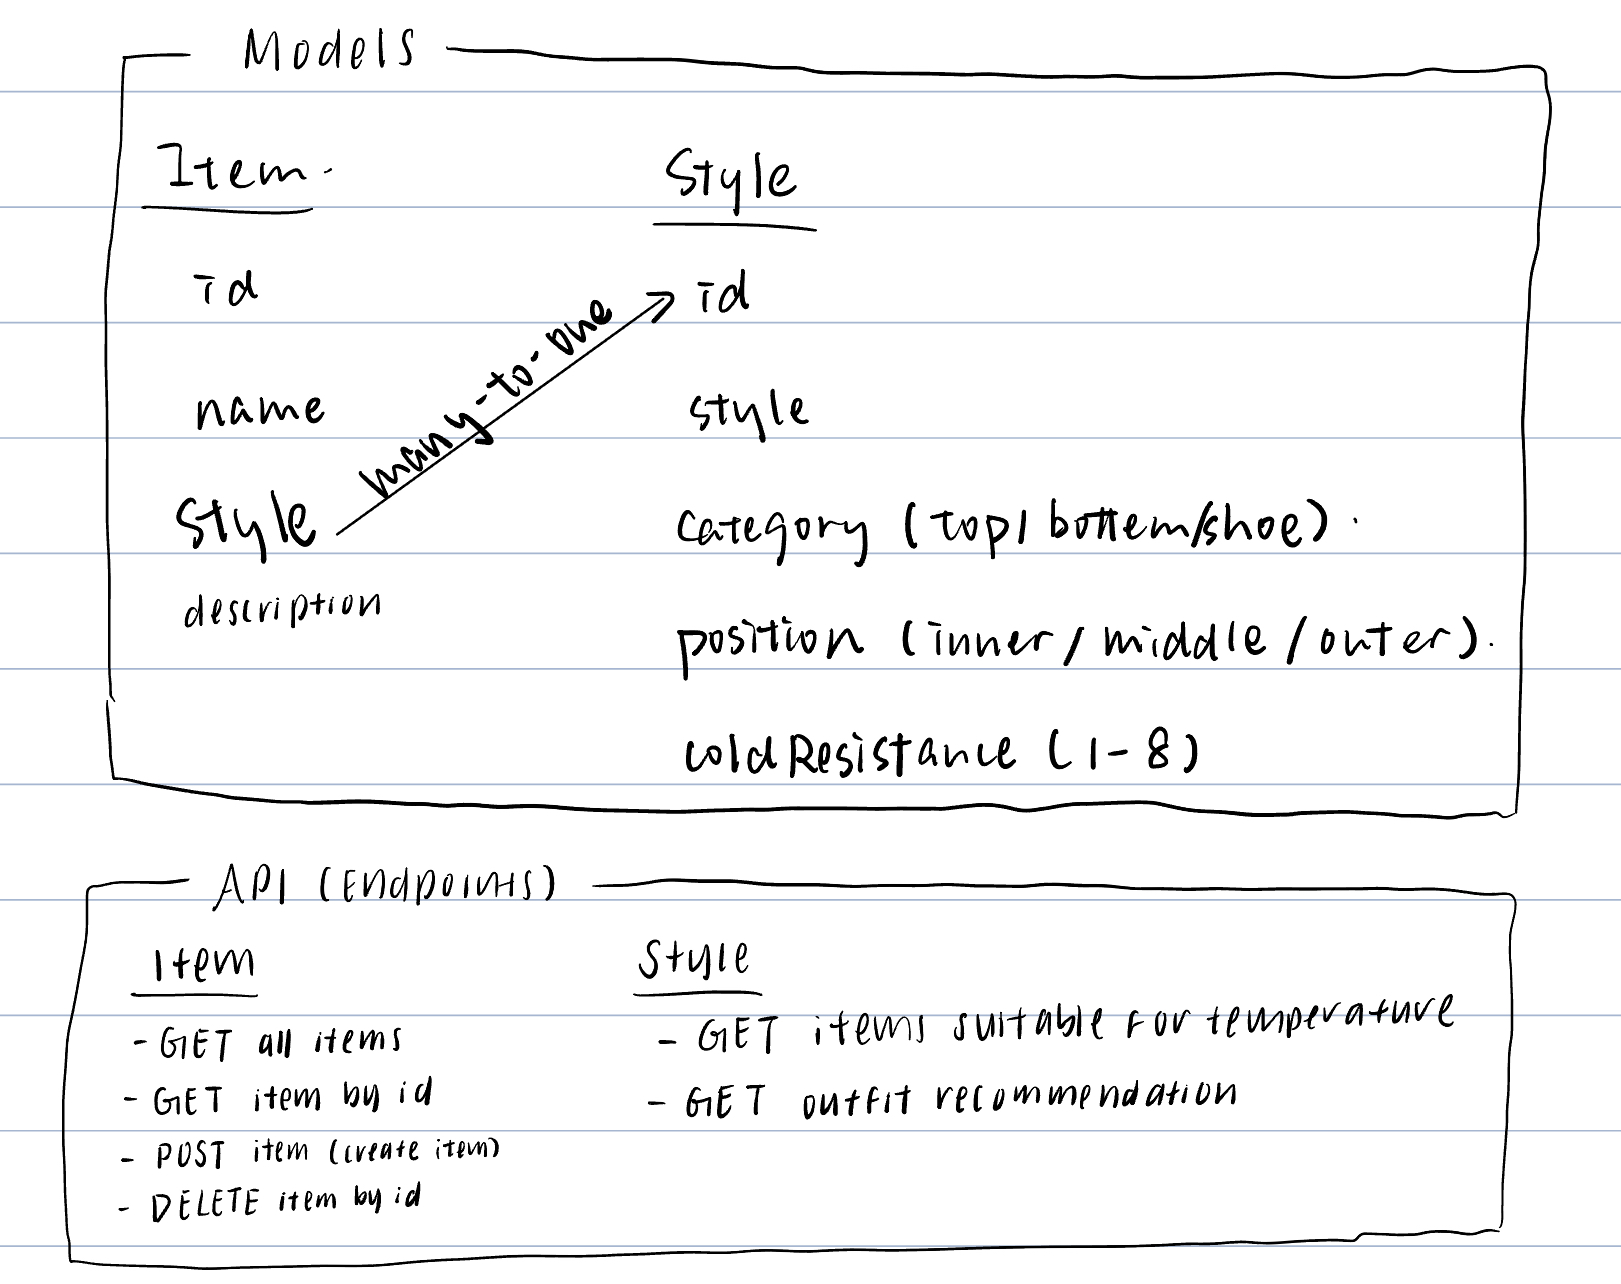 Models
Item.
id
name
style
description
many-to-one
Style
id
style
Category (top/bottem/shoe).
position (inner/middle/outer).
coldResistance (1-8)
API (Endpoints)
Item
- GET all items
- GET item by id
- POST item (create item)
- DELETE item by id
Style
- GET items suitable for temperature
- GET outfit recommendation